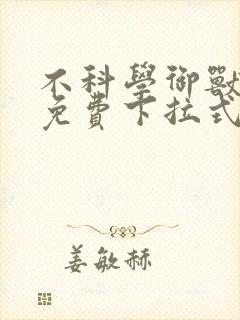 不科學御獸
免費下拉式
姜敏赫